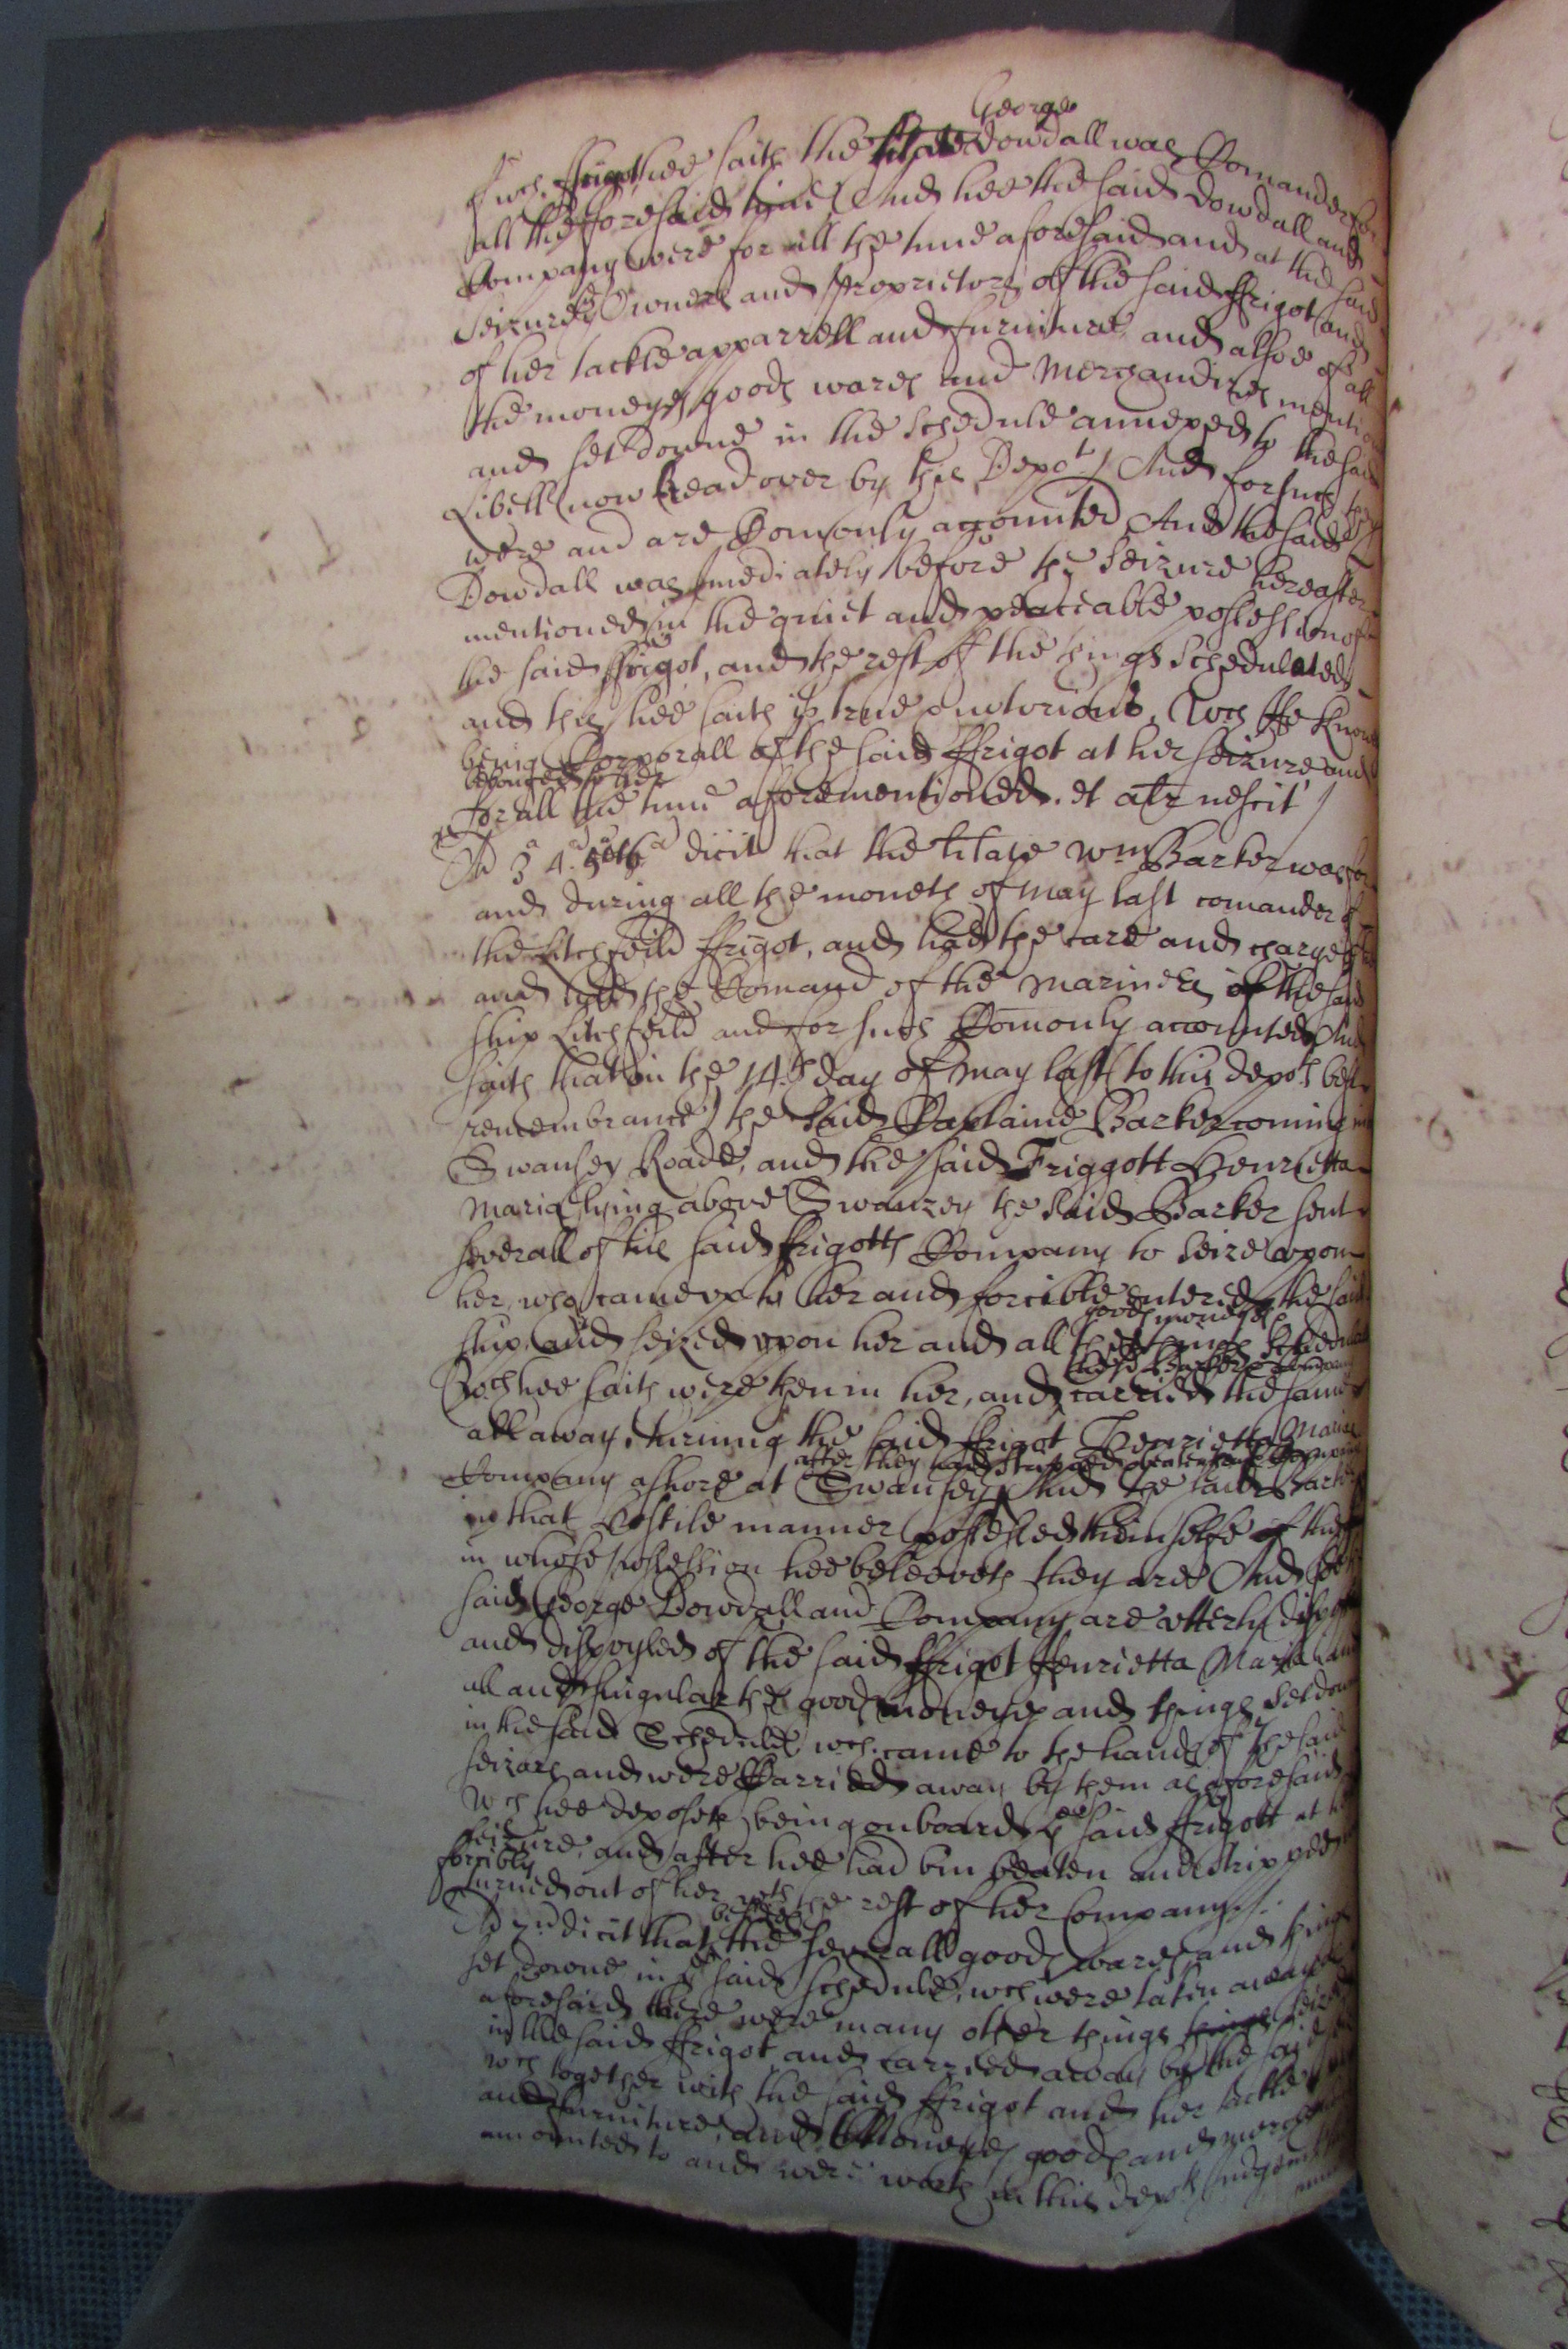 George
of wch. ffrigot hee saith the Dowdall was Comander for
all the foresaid time And hee the said Dowdall and
Company were for all the time aforesaid and at the said
seizure Owners and proprietors of the said ffrigot and
of her tackle apparrell and furniture and alsoe of all
the moneyes goods wares and Merchandizes mention
and set downe in the Schedule annexed to the said
Libell now Read over by this Depot And for such they
were and are Comonly accounted And the said
Dowdall was imediately before the seizure hereafter
mentioned in the quiet and peaceable possession of
the said ffrigot, and the rest of the things Schedulated
and this hee saith is true notorious, wch He knows
being Corporall of the said ffrigot at her seizure and
belonged to her
for all the time aforementioned. et alr nescit
Ad 3 4. 5 et 6 dicit that the arlate Wm Barker was for
and during all the moneth of May last comander of
the Litchfeild ffrigot, and had the care and charge
and the Comand of the Mariners of the said
ship Litchfeild and for such Comonly accounted And
saith that on the 14th day of May last (to this depots best
remembrance) the said Captaine Barker coming into
Swansey Roade, and the said Friggott Henrietta
Maria lying above Swanzey the said Barker sent
severall of his said ffrigotts Company to seize upon
her, who came up to her and forcible entered the said
goods moneyes
ship, and seized upon her and all the things Schedulat
Barker Company
wch hee saith were then in her, and carried the same
all away, turning the said ffrigot Henrietta Marias
after they had stripped beaten
Company ashore at Swansey And the said Barker
in that hostile manner possessed himselfe of the
in whose possession hee beleeveth they are And the
said George Dowdall and Company are utterly
and dispoyled of the said ffrigot Henrietta Maria and
all and singular the goods moneyes and things set downe
in the said Schedule wch. came to the hands of the said
seizors and were Carried away by them as aforesaid
wch hee deposeth being onboard ye said ffrigott at her
seizure, and after hee had bin beaten and stripped
forcibly
turned out of her wth the rest of her Company./.
besides
Ad 7. dicit that the severall goods wares and things
set downe in ye said schedule, wch were taken away
aforesaid there were many other things things seized
in the said ffrigot and carried away by the said
wch together with the said ffrigot and her tackle
and furniture, and moneyes goods and merchandizes
amounted to and were worth in this depots Judgement